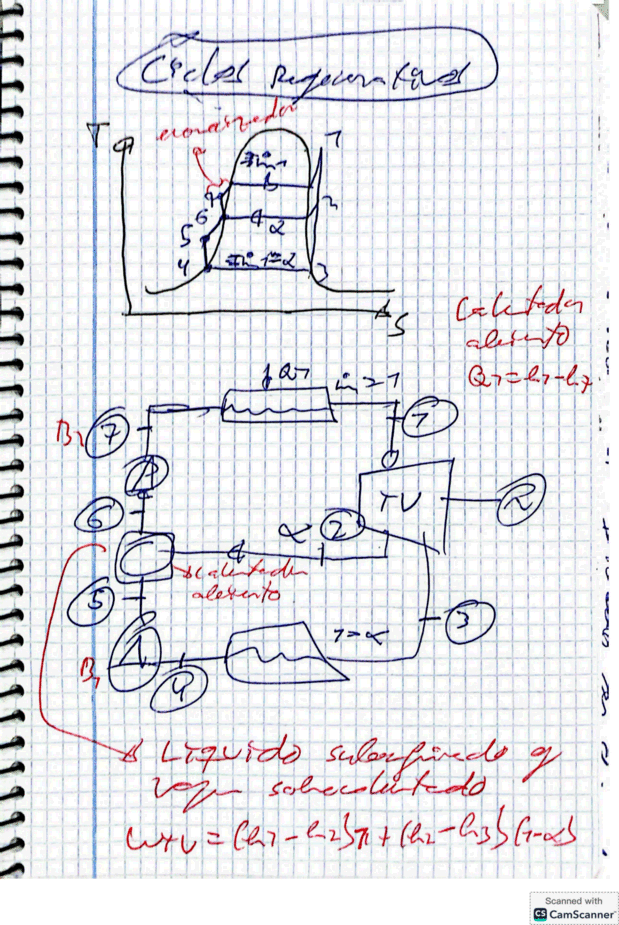 Ciclos Regenerativos
economizador
T
ṁ=1
1
b
7
6
α
2
5
4
ṁ=1-α
3
S
Calentador
abierto
Q1=h1-h7
Q1
ṁ=1
B2
7
1
6
TV
R
α
2
C
calentador
abierto
5
1-α
3
B1
4
Líquido subenfriado y
vapor sobrecalentado
WTV=(h1-h2)1+(h2-h3)(1-α)
Scanned with
CS CamScanner